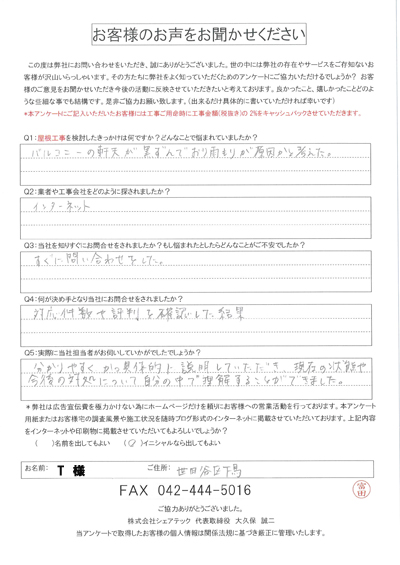 お客様のお声をお聞かせください
この度は弊社にお問い合わせをいただき、誠にありがとうございました。世の中には弊社の存在やサービスをご存知ないお
客様が沢山いらっしゃいます。その方たちに弊社をよく知っていただくためのアンケートにご協力いただけるでしょうか？ お客
様のご意見をお聞かせいただき今後の活動に反映させていただきたいと考えております。良かったこと、嬉しかったことどの
ような些細な事でも結構です。是非ご協力お願い致します。（出来るだけ具体的に書いていただければ幸いです）
*本アンケートにご記入いただいたお客様には工事ご用命時に工事金額(税抜き)の 2%をキャッシュバックさせていただきます。
Q1：屋根工事を検討したきっかけは何ですか？どんなことで悩まれていましたか？
バルコニーの軒天が黒ずんでおり雨もりが原因かと考えた。
Q2：業者や工事会社をどのように探されましたか？
インターネット
Q3：当社を知りすぐにお問合せをされましたか？もし悩まれたとしたらどんなことがご不安でしたか？
すぐに問い合わせをした。
Q4：何が決め手となり当社にお問合せをされましたか？
対応件数や評判を確認した結果
Q5：実際に当社担当者がお伺いしていかがでしたでしょうか？
分かりやすく、かつ具体的に説明していただき、現在の状態や
今後の対処について自分の中で理解することができました。
＊弊社は広告宣伝費を極力かけない為にホームページだけを頼りにお客様への営業活動を行っております。本アンケート
用紙またはお客様宅の調査風景や施工状況を随時ブログ形式のインターネットに掲載させていただいております。上記内容
をインターネットや印刷物に掲載させていただいてもよろしいでしょうか？
（　）名前を出してもよい　（○）イニシャルなら出してもよい
お名前： T 様 ご住所： 世田谷区下馬
FAX 042-444-5016
富田
ご協力ありがとうございました。
株式会社シェアテック 代表取締役 大久保 誠二
当アンケートで取得したお客様の個人情報は関係法規に基づき厳正に管理いたします。